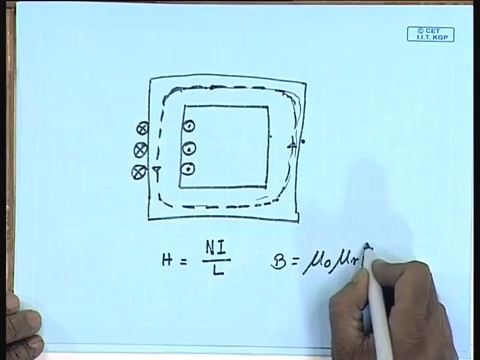 © CET
I.I.T. KGP
H = NI / L B = μ₀ μr